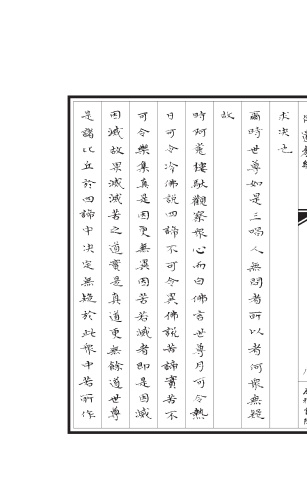 求決也
爾時世尊如是三唱人無問者所以者何衆無疑
故
時阿㝹樓馱觀察衆心而白佛言世尊月可令熱
日可令冷佛說四諦不可令異佛說苦諦實苦不
可令樂集真是因更無異因苦若滅者即是因滅
因滅故果滅滅苦之道實是真道更無餘道世尊
是諸比丘於四諦中決定無疑於此衆中若所作